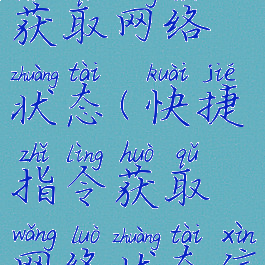 获取网络
zhuàng tài kuài jié
状态(快捷
zhǐ lìng huò qǔ
指令获取
wǎng luò zhuàng tài xìn
网络状态信